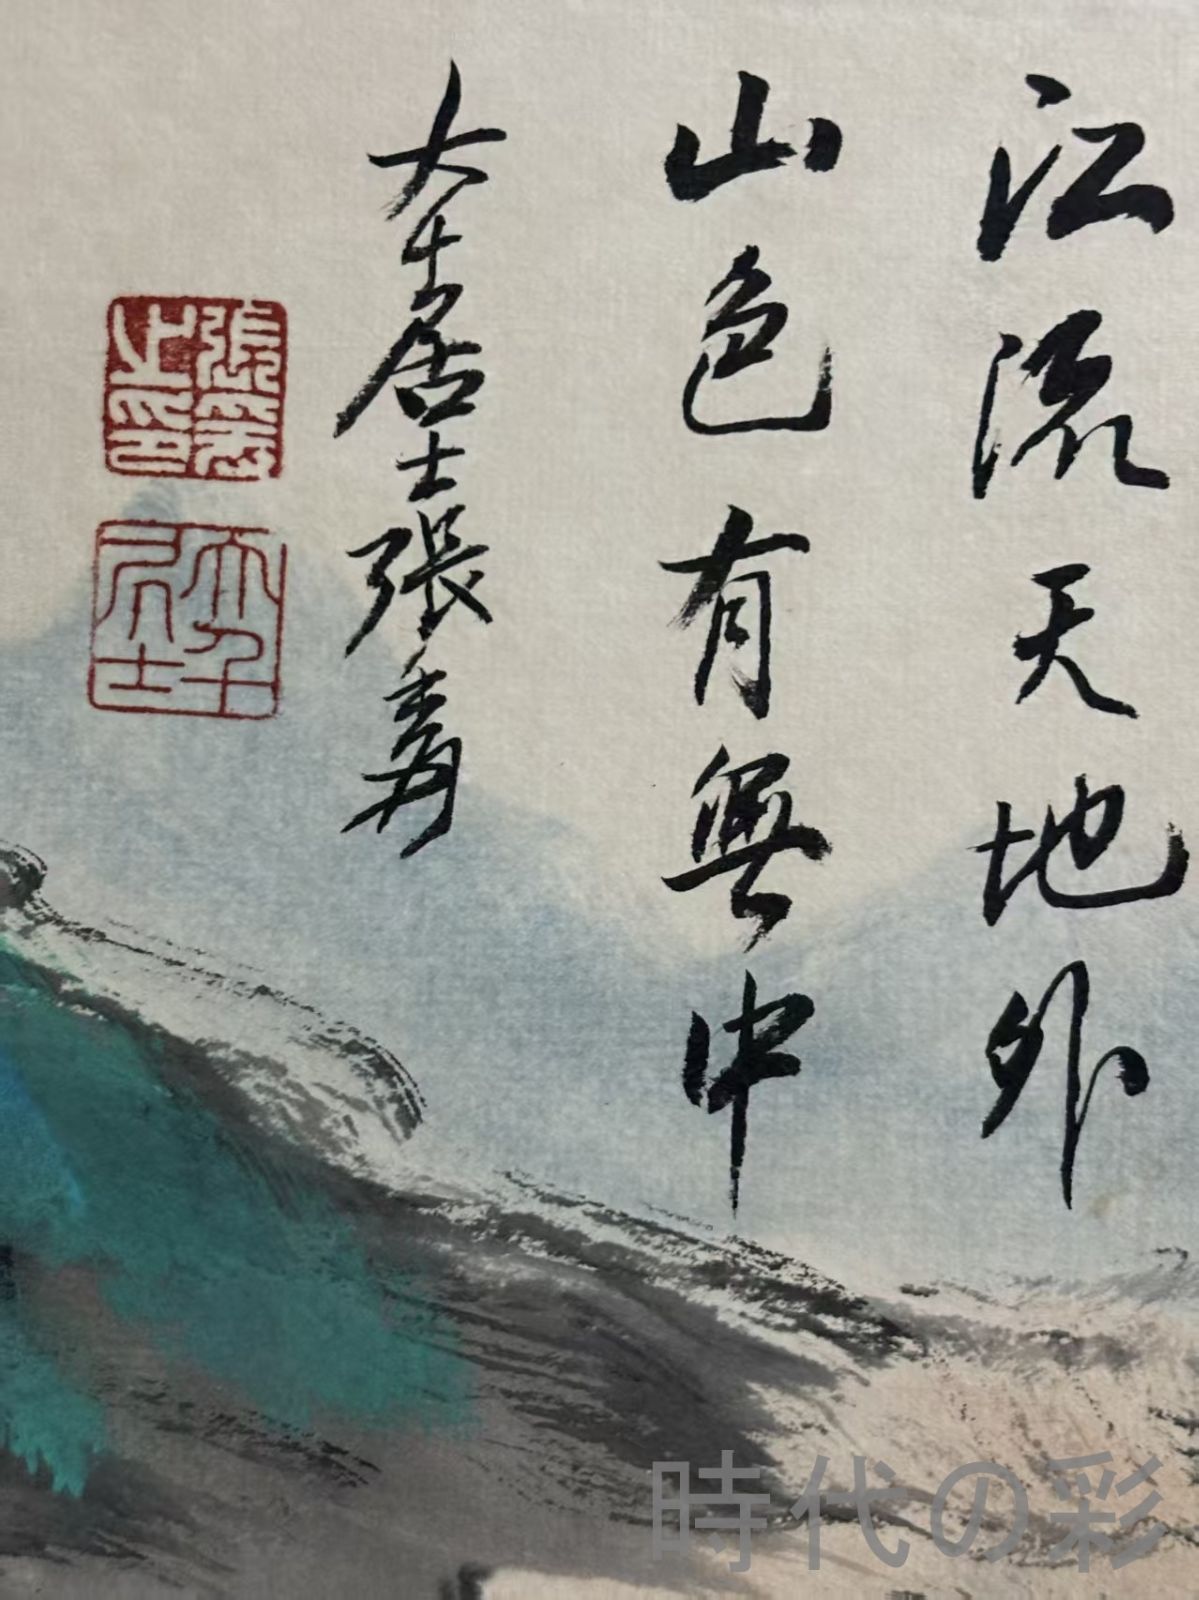 江流天地外
山色有無中
大千居士張爰
張爰之印
大千居士
時代の彩